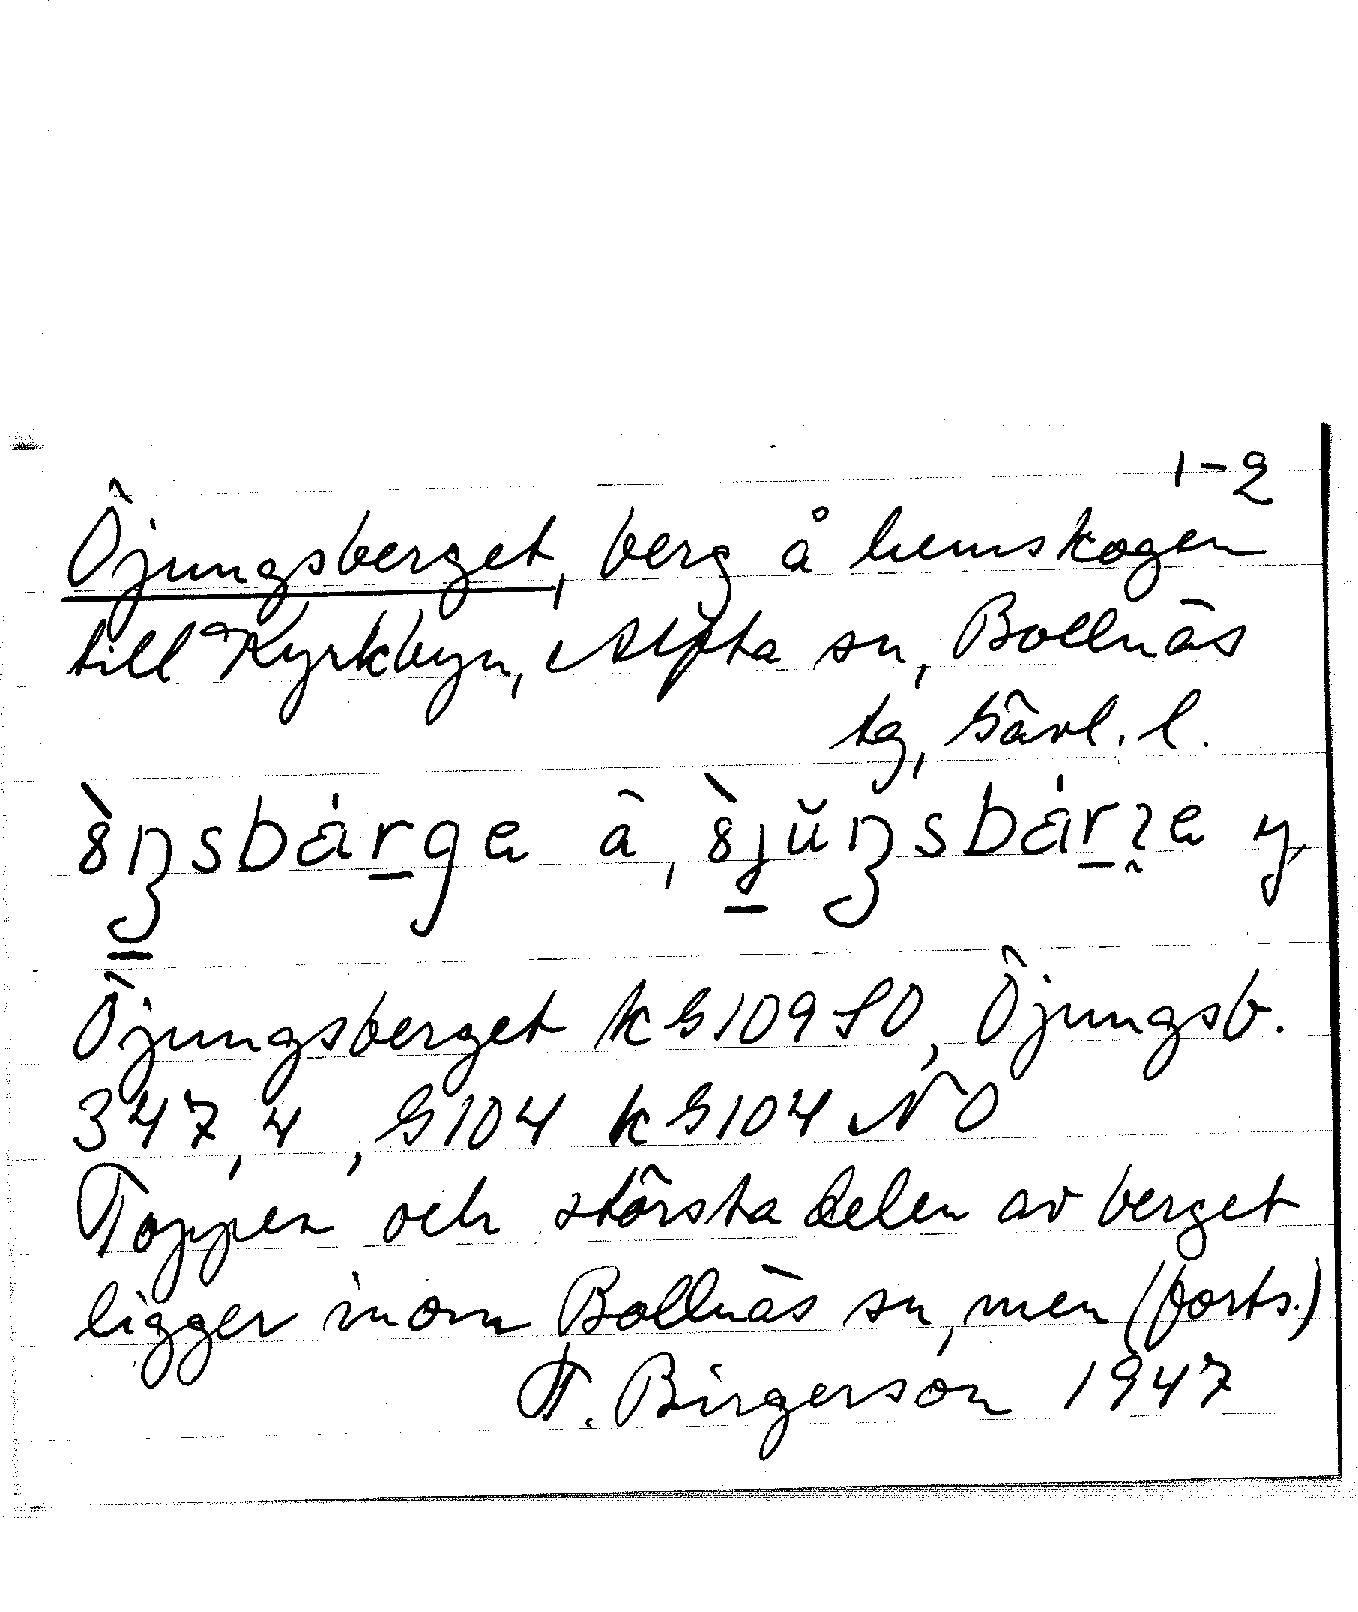 1-2
Öjungsberget, berg å hemskogen
till Kyrkbyn, Alfta sn, Bollnäs
tg, Gävl. l.
Öjungsberget kG109SO, Öjungsb.
347,4, G104 kG104 NO
Toppen och största delen av berget
ligger inom Bollnäs sn, men (forts.)
Birgerson 1947